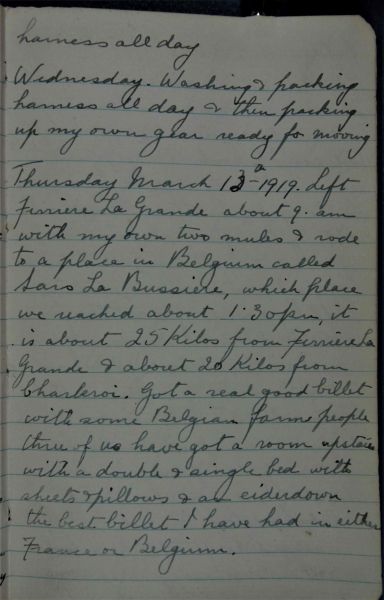 harness all day
Wednesday. Washing & packing
harness all day & then packing
up my own gear ready for moving
Thursday March 13th 1919. Left
Ferriere La Grande about 9. am
with my own two mules & rode
to a place in Belgium called
Sars La Bussiere, which place
we reached about 1.30pm, it
is about 25 Kilos from Ferriere La
Grande & about 20 Kilos from
Charleroi. Got a real good billet
with some Belgian farm people
three of us have got a room upstairs
with a double & single bed with
sheets & pillows & an eiderdown
the best billet I have had in either
France or Belgium.